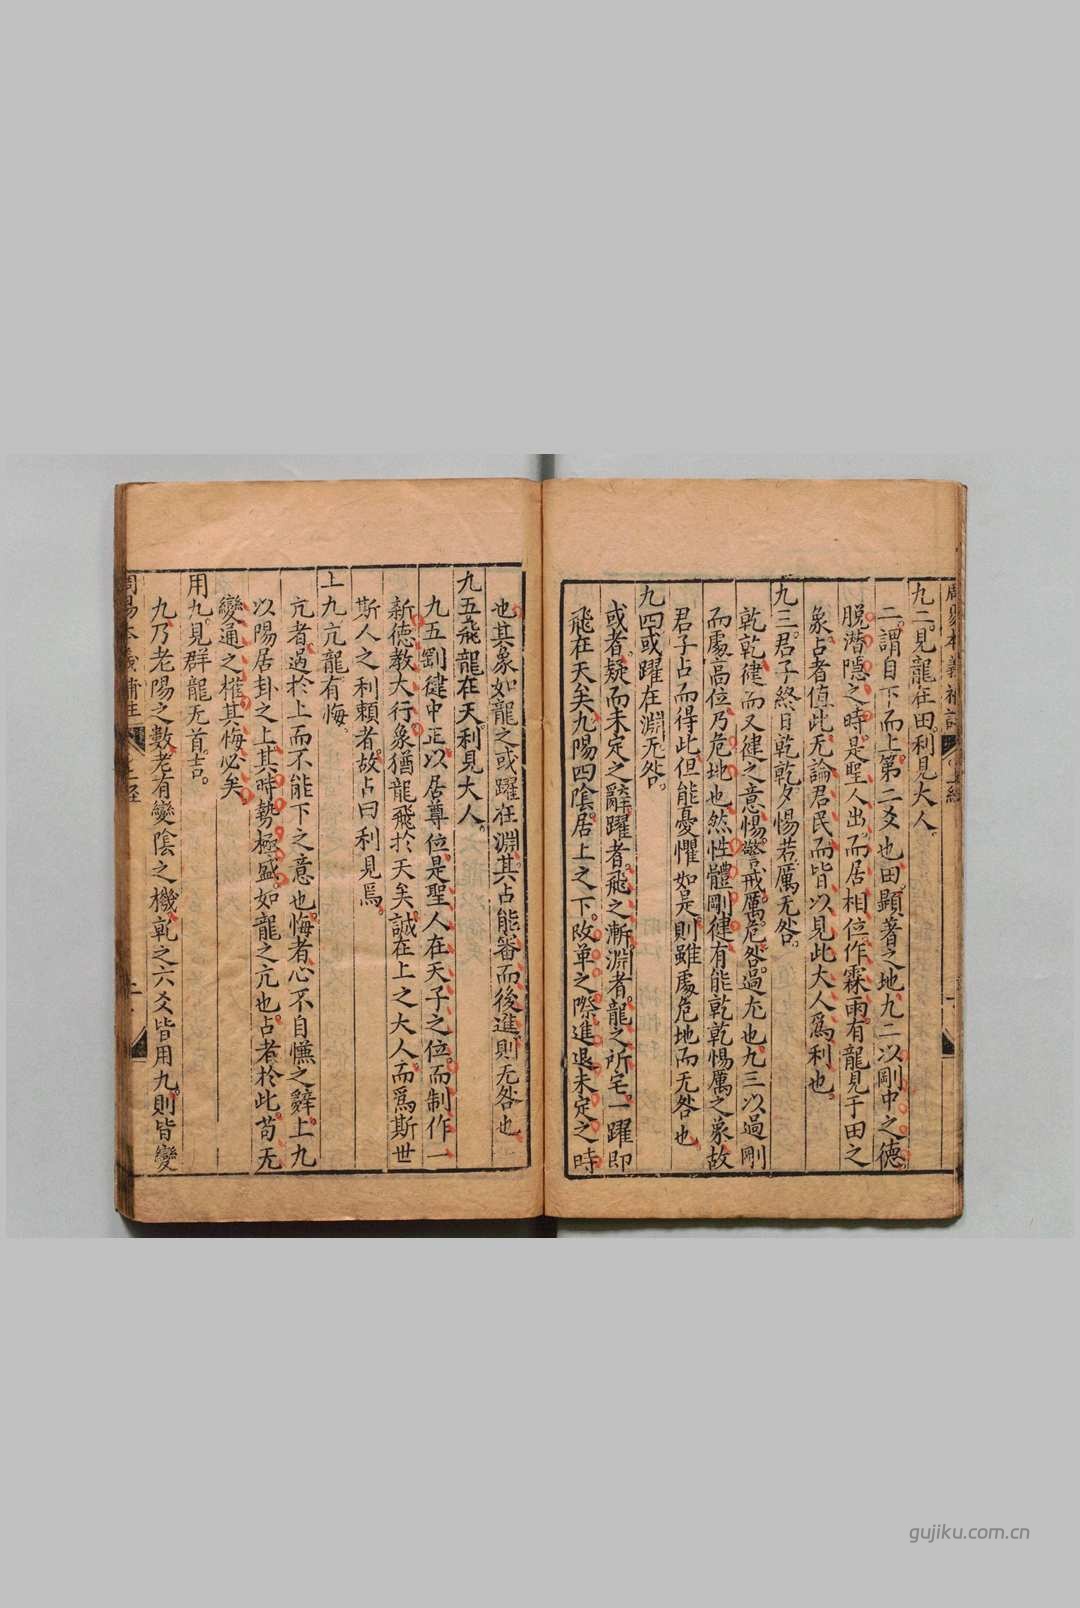 九二。見龍在田。利見大人。
二。謂自下而上。第二爻也。田。顯著之地。九二以剛中之德。
脫潛隱之時。是聖人出。而居相位。作霖雨。有龍見于田之
象。占者值此。无論君民。而皆以見此大人爲利也。
九三。君子終日乾乾。夕惕若。厲无咎。
乾乾。徤而又徤之意。惕。警戒。厲。危。咎。過尤也。九三以過剛
而處高位。乃危地也。然性體剛徤。有能乾乾惕厲之象。故
君子占而得此。但能憂懼如是。則雖處危地而无咎也。
九四。或躍在淵。无咎。
或者。疑而未定之辭。躍者。飛之漸。淵者。龍之所宅。一躍即
飛在天矣。九陽四陰。居上之下。改革之際。進退未定之時
也。其象如龍之或躍在淵。其占能審而後進。則无咎也。
九五。飛龍在天。利見大人。
九五剛徤中正。以居尊位。是聖人在天子之位。而制作一
新。德教大行。象猶龍飛於天矣。誠在上之大人。而爲斯世
斯人之利賴者。故占曰利見焉。
上九。亢龍有悔。
亢者。過於上而不能下之意也。悔者。心不自慊之辭。上九
以陽居卦之上。其時勢極盛。如龍之亢也。占者於此。苟无
變通之權。其悔必矣。
用九。見群龍无首。吉。
九乃老陽之數。老有變陰之機。乾之六爻皆用九。則皆變
周易本義補註
上經
二
gujiku.com.cn